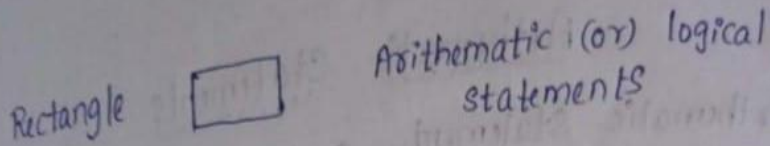 Rectangle Arithematic (or) logical
statements